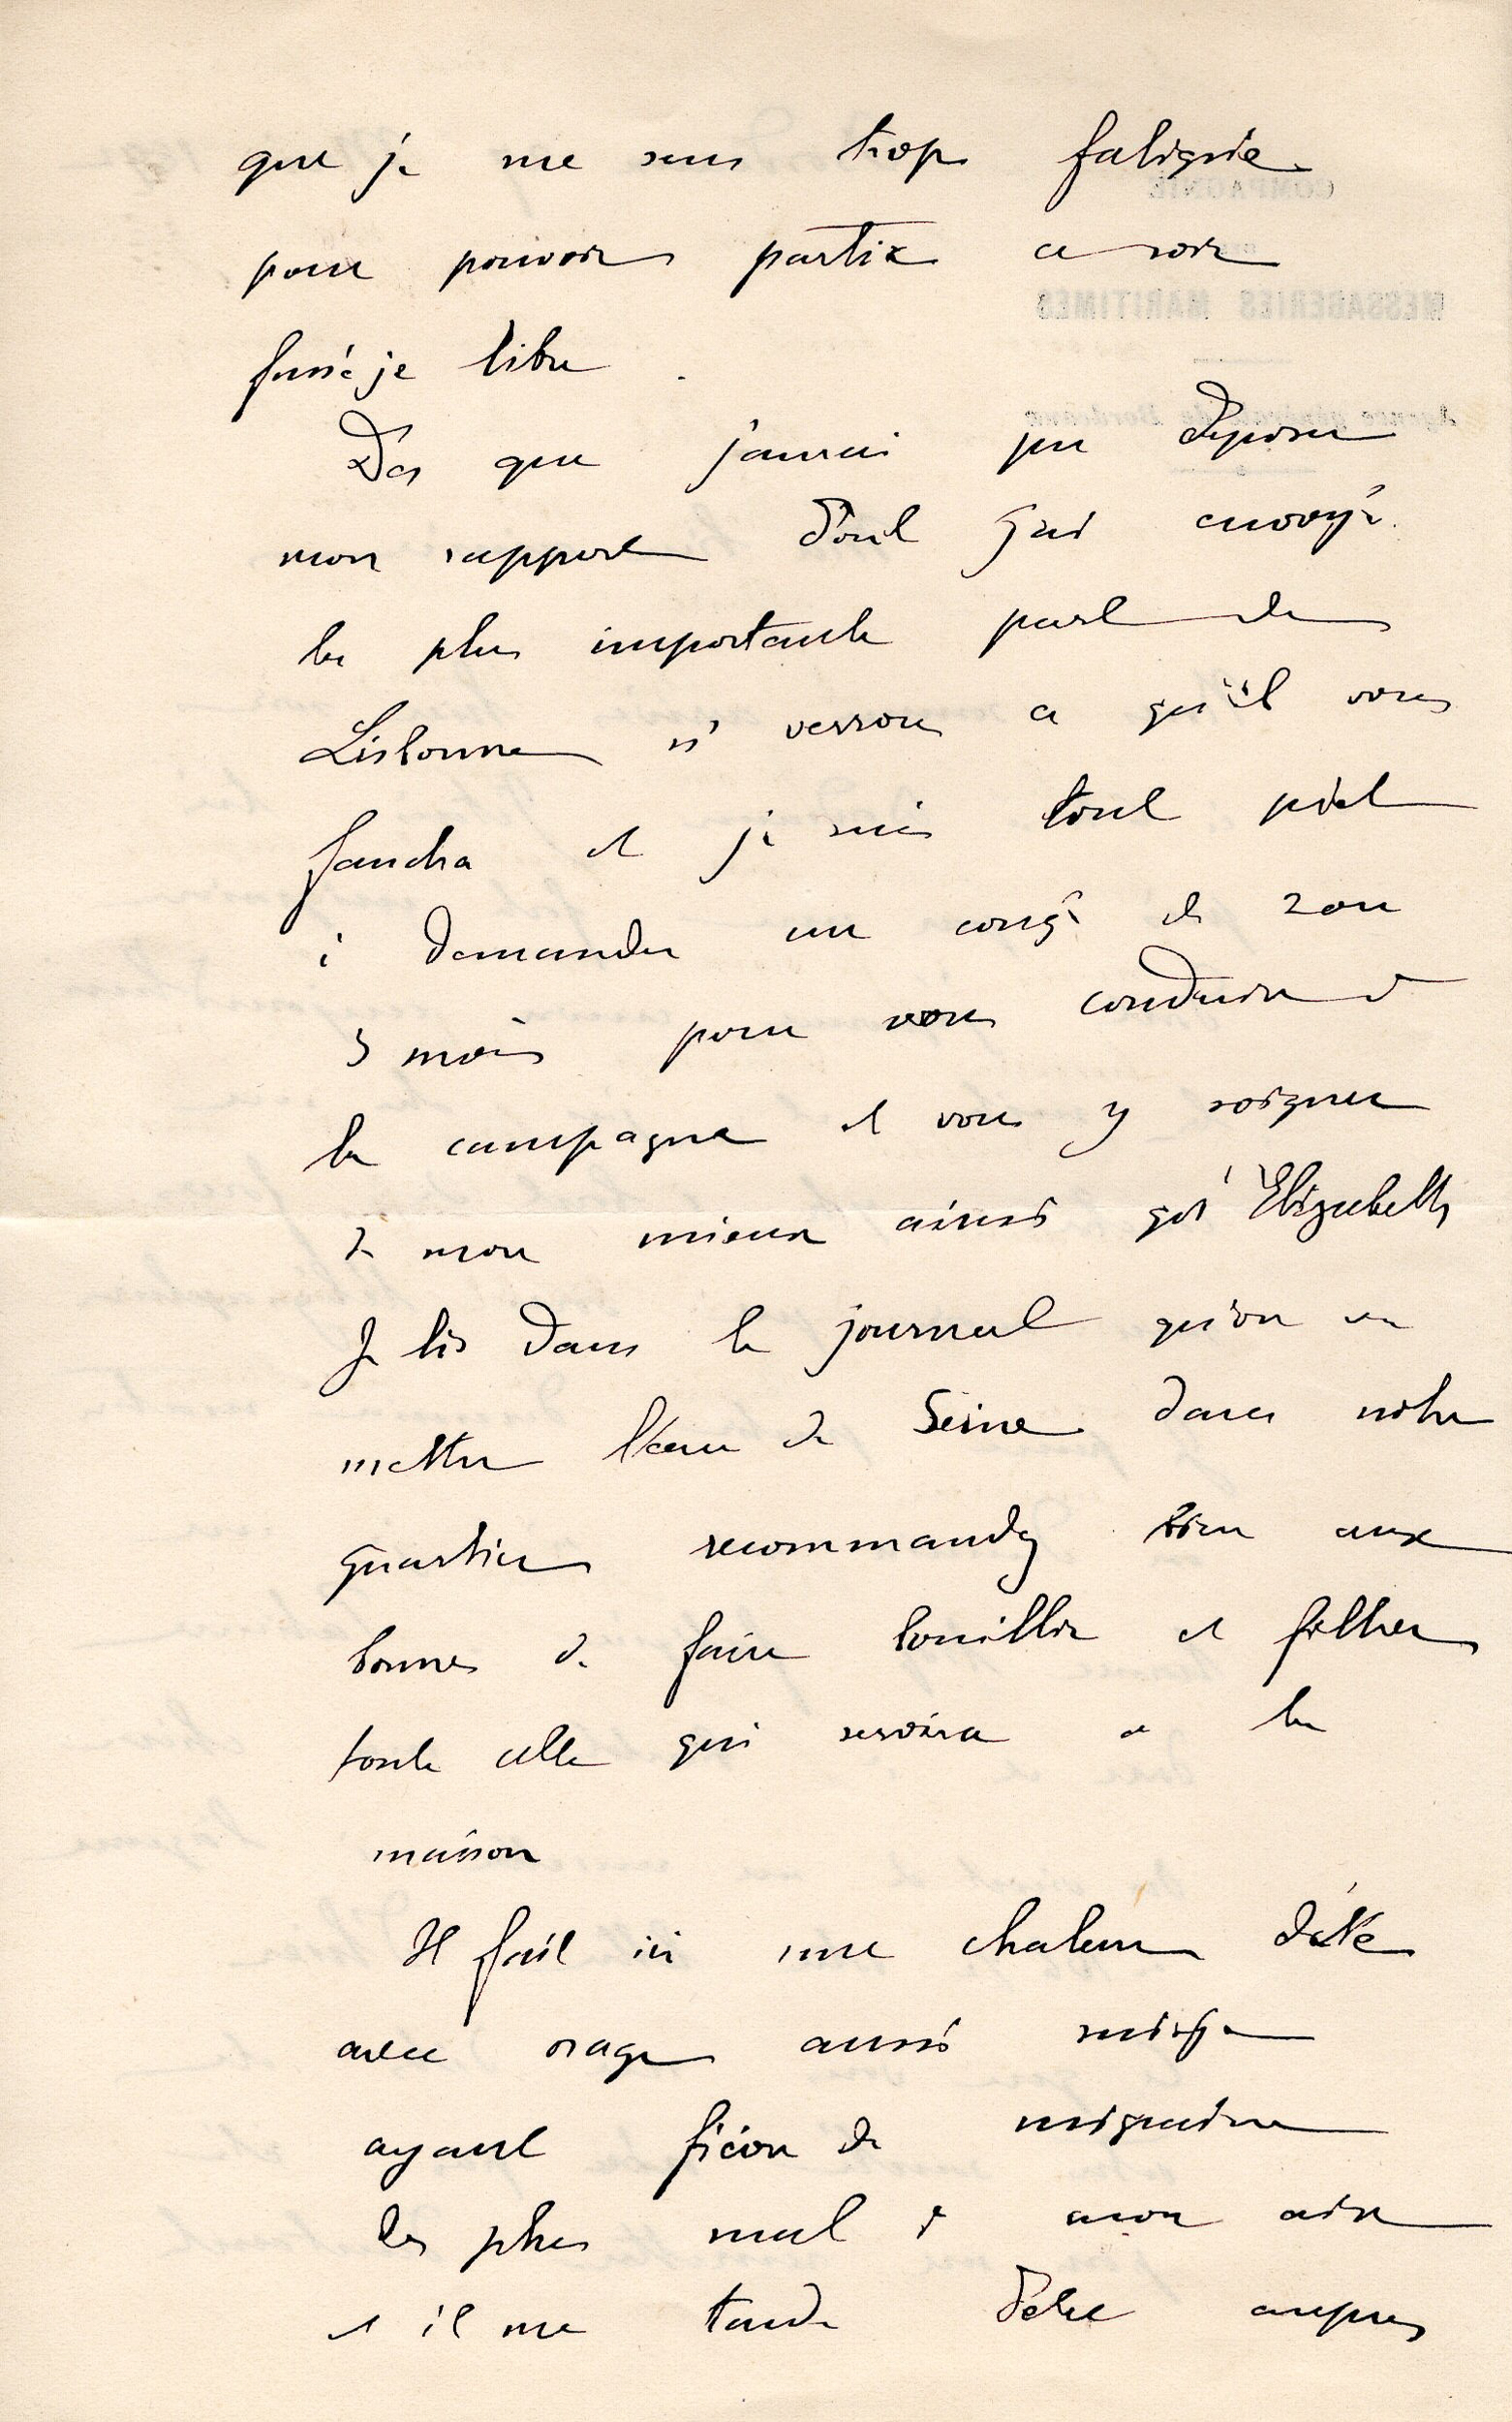 que je me sens trop fatiguée
pour pouvoir partir ce soir
fussé je libre.
Dès que j'aurai pu déposer
mon rapport dont j'ai envoyé
la plus importante part de
Lisbonne ns verrons ce qu'il vous
faudra et je suis tout prêt
à demander un congé de 2 ou
3 mois pour vous conduire à
la campagne et vous y soigner
de mon mieux ainsi qu'Elizabeth
Je lis dans le journal qu'on va
mettre l'eau de Seine dans notre
quartier recommandez bien aux
bonnes de faire bouillir et filtrer
toute celle qui servira a la
maison
Il fait ici une chaleur d'été
avec orage aussi suis-je
ayant façon de migraine
des plus mal à mon aise
et il me tarde d'être auprès
COMPAGNIE
MESSAGERIES MARITIMES
Agence générale de Bordeaux